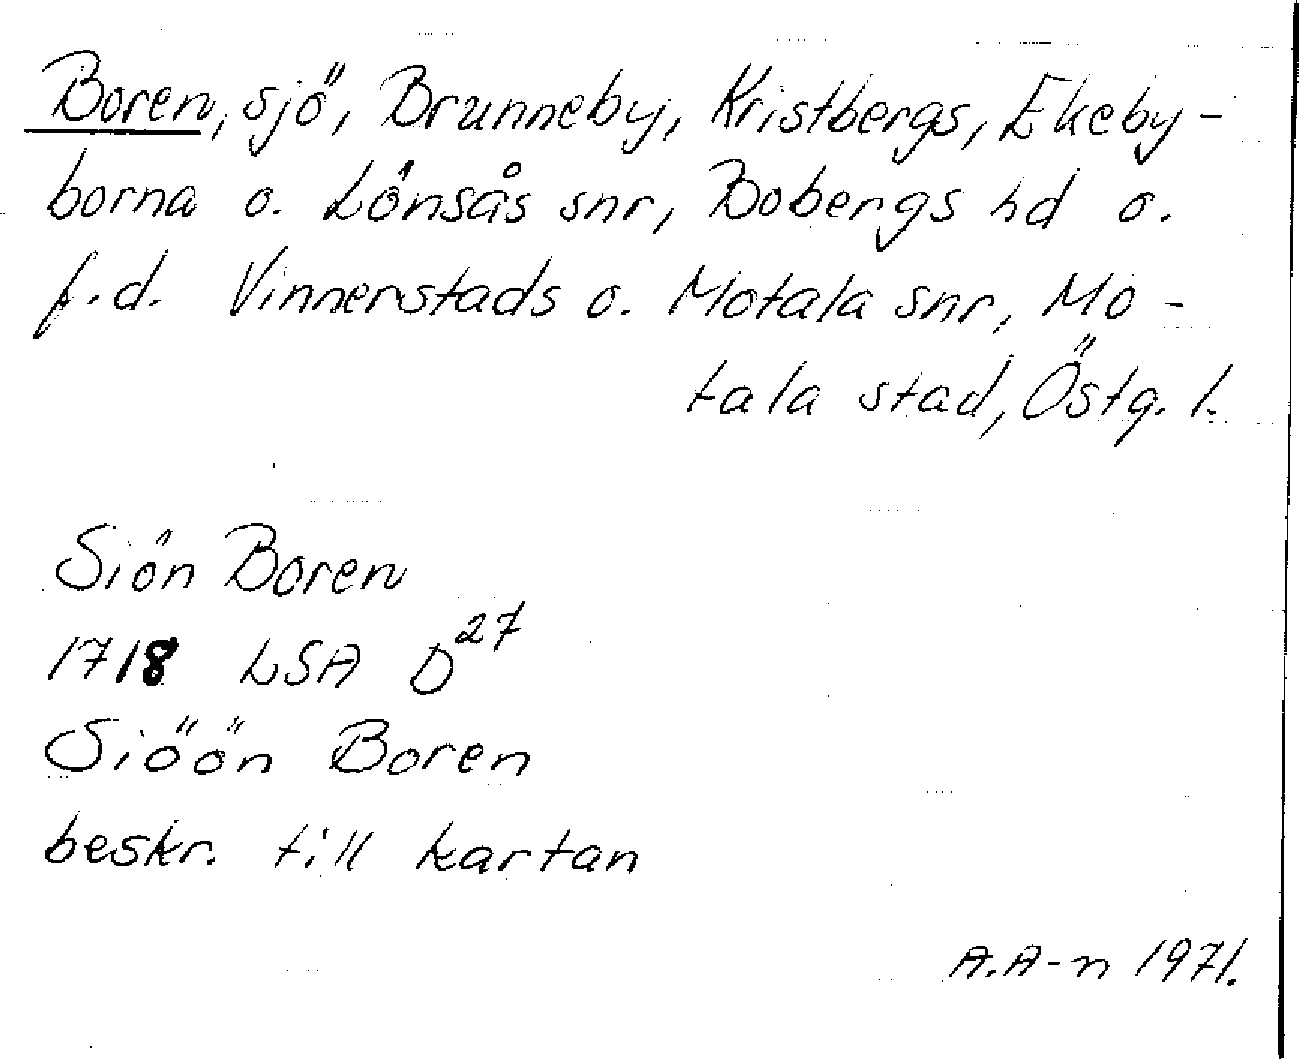 Boren, sjö, Brunneby, Kristbergs, Ekeby-
borna o. Lönsås snr, Bobergs hd o.
f.d. Vinnerstads o. Motala snr, Mo-
tala stad, Östg. l.
Siön Boren
1718 LSA D27
Siöön Boren
beskr. till kartan
A.A-n 1971.